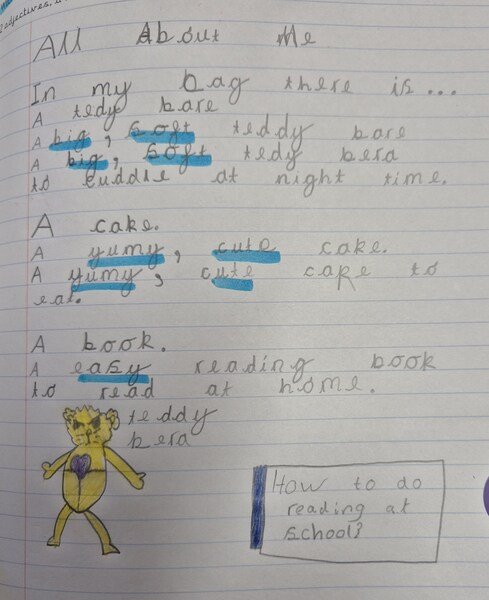 adjectives,
All About Me
In my bag there is ...
A tedy bare
A big, soft teddy bare
A big, soft tedy bera
to cuddle at night time.
A cake.
A yumy, cute cake.
A yumy, cute cake to
eat.
A book.
A easy reading book
to read at home.
teddy
bera
How to do
reading at
school?